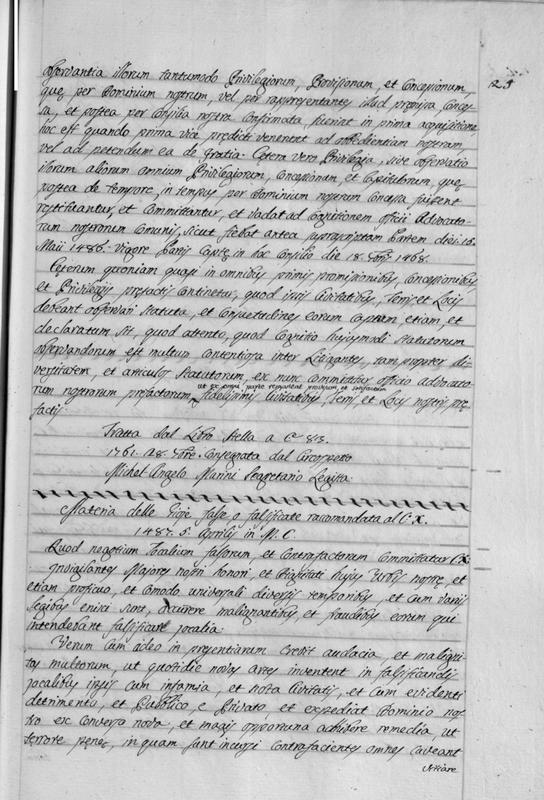 125
observantia illorum tantumodo Privilegiorum, Provisionum, et Concessionum,
quę per Dominium nostrum, vel per rappresentantes illud promissa, Conces-
sa, et postea per Consilia nostra Confirmata, fuerint in prima acquisitione
hoc est quando prima vice predicti venerunt ad obedientiam nostram,
vel ad petendum ea de gratia. Cetera vero Privilegia, sive observatio
illorum aliorum omnium Privilegiorum, Concessionum, et Capitulorum, quę
postea de tempore, in tempus per Dominium nostrum Concessa fuissent
restituantur, et Committantur, et vadat ad Cognitionem officii Advocato-
rum nostrorum Comunis, sicut fiebat antea suprascriptam Partem diei 16.
Maii 1486. Vigore Partis Captę in hoc Consilio die 18. 1468.
Ceterum quoniam quasi in omnibus primis promissionibus, Concessionibus
et Privilegiis prefactis Continetur, quod ipsis Civitatibus, Terris et Locis
debeant observari Statuta, et Consuetudines eorum Captum, etiam, et
declaratum sit, quod attento, quod Cognitio hujusmodi statutorum
observandorum est multum contentiosa inter Litigantes, tam propter di-
versitatem, et articulos statutorum, ex nunc committatur officio advocato-
ut ex omni parte remaneant provisum, et satisfactum
rum nostrorum prefactorum, fidelissimis Civitatibus, Terris, et Locis nostris prę-
factis.
Tratta dal Libro Stella a C.e 83.
1761. 28. Consegnata dal Circospetto
Michel Angelo Marini Segretario Legista.
Materia delle Gioje false o falsificate raccomandata al C. X.
1487. 5. Aprilis in M. C.
Quod negotium Jocalium falsorum, et Contrafactorum Committatur C. X.
Invigilantes Majores nostri honori, et Dignitati hujus Urbis nostrę, et
etiam proficuo, et comodo universali diversis temporibus, et cum variis
legibus enixi sunt, occurrere malignantibus, et fraudibus eorum qui
intendebant falsificare jocalia.
Verum cum adeo in presentiarum Credit audacia, et maligni-
tas multorum, ut quotidie novas artes inventent in falsificandis
jocalibus ipsis cum infamia, et nota Civitatis, et cum evidenti
detrimento, et Pubblico, e Privato, et expediat Dominio nos-
tro ex Converso nova, et magis opportuna adhibere remedia, ut
terrore penę, in quam sunt incursi Contrafacientes omnes caveant